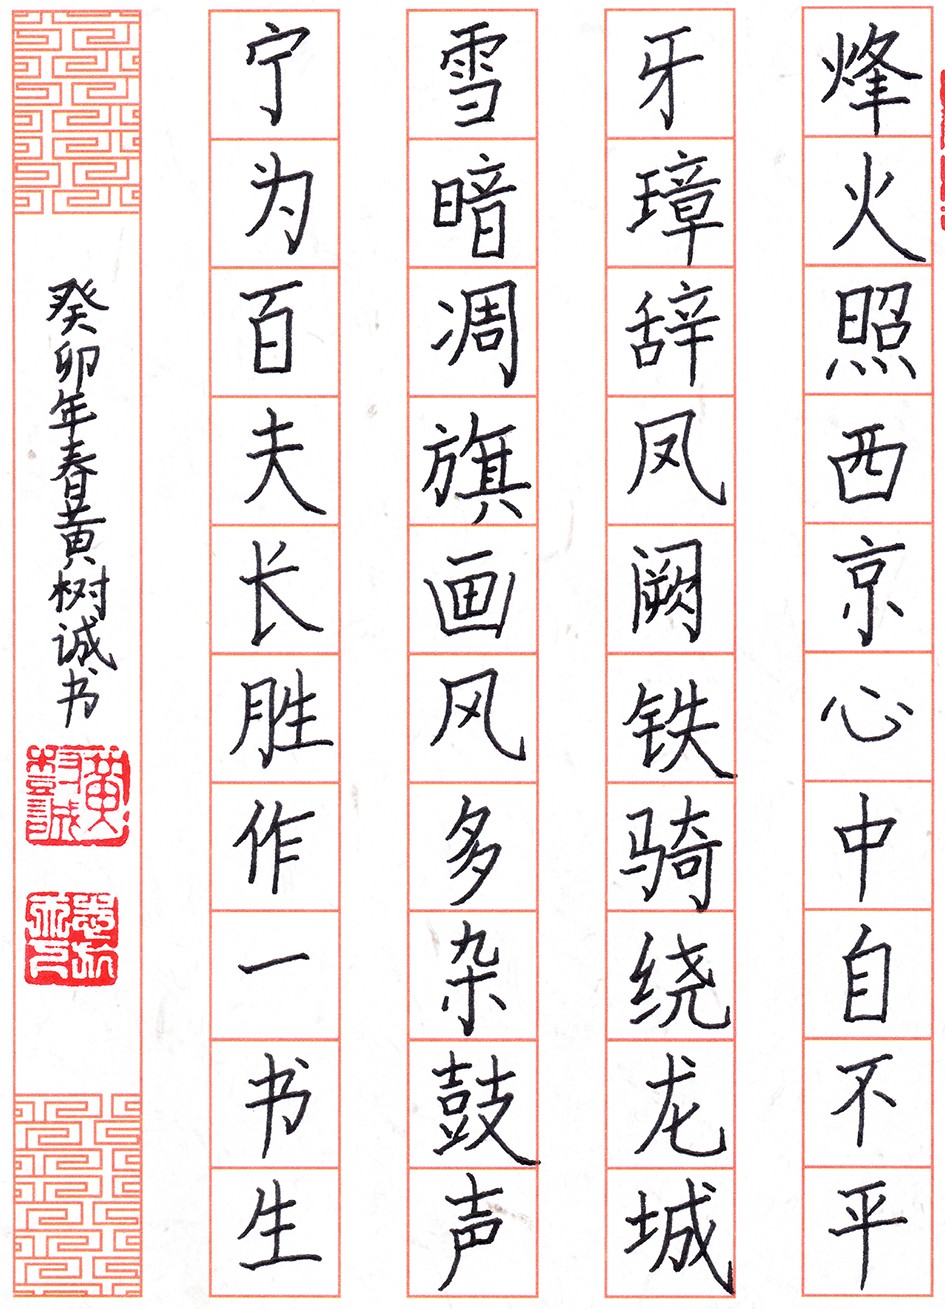 烽火照西京心中自不平
牙璋辞凤阙铁骑绕龙城
雪暗凋旗画风多杂鼓声
宁为百夫长胜作一书生
癸卯年春黄树诚书
黄树誠